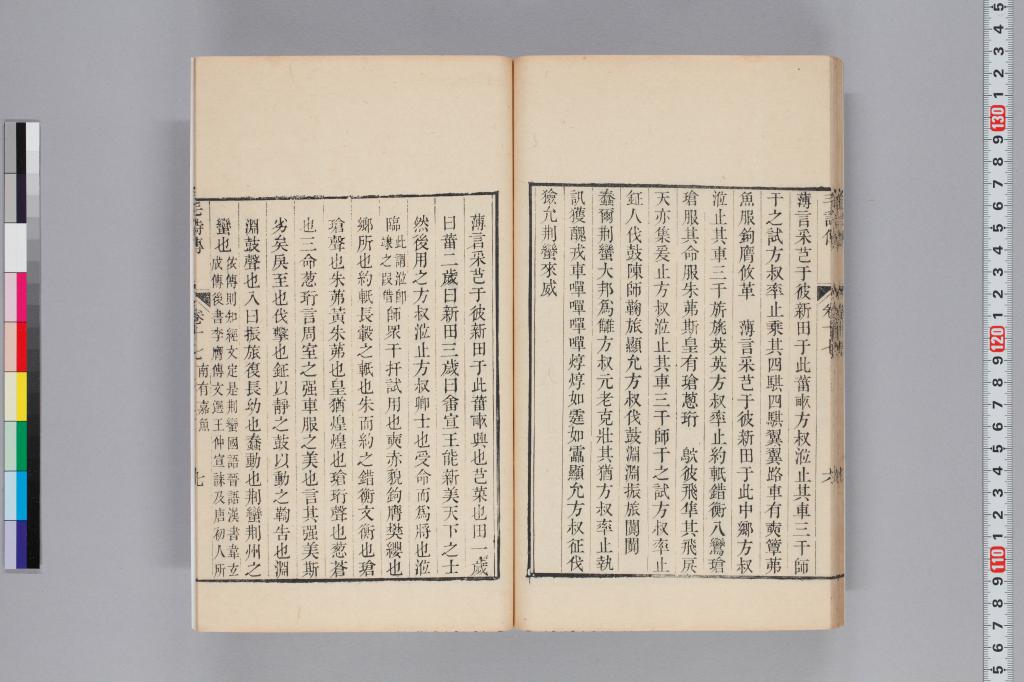 薄言采芑于彼新田于此菑畝方叔涖止其車三千師
干之試方叔率止乘其四騏四騏翼翼路車有奭簟茀
魚服鉤膺鞗革 薄言采芑于彼新田于此中鄉方叔
涖止其車三千旂旐英英方叔率止約軝錯衡八鸞瑲
瑲服其命服朱茀斯皇有瑲蔥珩 鴥彼飛隼其飛戾
天亦集爰止方叔涖止其車三千師干之試方叔率止
鉦人伐鼓陳師鞠旅顯允方叔伐鼓淵淵振旅闐闐
蠢爾荆蠻大邦爲讎方叔元老克壯其猶方叔率止執
訊獲醜戎車嘽嘽嘽嘽焞焞如霆如靁顯允方叔征伐
獫允荆蠻來威
薄言采芑于彼新田于此菑畝興也芑菜也田一歲
曰菑二歲曰新田三歲曰畬宣王能新美天下之士
然後用之方叔涖止方叔卿士也受命而爲將也涖
臨此謂涖卽𨽿之叚借師眾干扞試用也奭赤貌鉤膺樊纓也
鄉所也約軝長轂之軝也朱而約之錯衡文衡也瑲
瑲聲也朱茀黃朱茀也皇猶煌煌也瑲珩聲也蔥蒼
也三命蔥珩言周室之强車服之美也言其强美斯
劣矣戾至也伐擊也鉦以靜之鼓以動之鞠告也淵
淵鼓聲也入曰振旅復長幼也蠢動也荆蠻荆州之
蠻也依傳則知經文定是荆蠻國語晉語漢書韋玄成傳後書李膺傳文選王仲宣誄及唐初人所
毛詩傳
卷十七
南有嘉魚
七
毛詩傳
卷十七
六